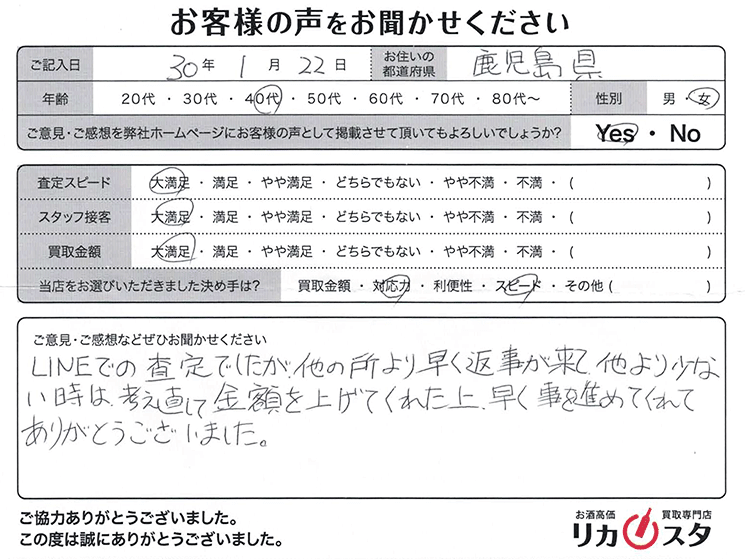 お客様の声をお聞かせください
ご記入日 30年 1月 22日 お住いの都道府県 鹿児島県
年齢 20代 ・ 30代 ・ 40代 ・ 50代 ・ 60代 ・ 70代 ・ 80代〜 性別 男 ・ 女
ご意見・ご感想を弊社ホームページにお客様の声として掲載させて頂いてもよろしいでしょうか? Yes ・ No
査定スピード 大満足 ・ 満足 ・ やや満足 ・ どちらでもない ・ やや不満 ・ 不満 ・ ( )
スタッフ接客 大満足 ・ 満足 ・ やや満足 ・ どちらでもない ・ やや不満 ・ 不満 ・ ( )
買取金額 大満足 ・ 満足 ・ やや満足 ・ どちらでもない ・ やや不満 ・ 不満 ・ ( )
当店をお選びいただきました決め手は? 買取金額 ・ 対応力 ・ 利便性 ・ スピード ・ その他 ( )
ご意見・ご感想などぜひお聞かせください
LINEでの査定でしたが、他の所より早く返事が来て、他より少な
い時は、考え直して金額を上げてくれた上、早く事を進めてくれて
ありがとうございました。
ご協力ありがとうございました。
この度は誠にありがとうございました。
お酒高価 買取専門店
リカスタ